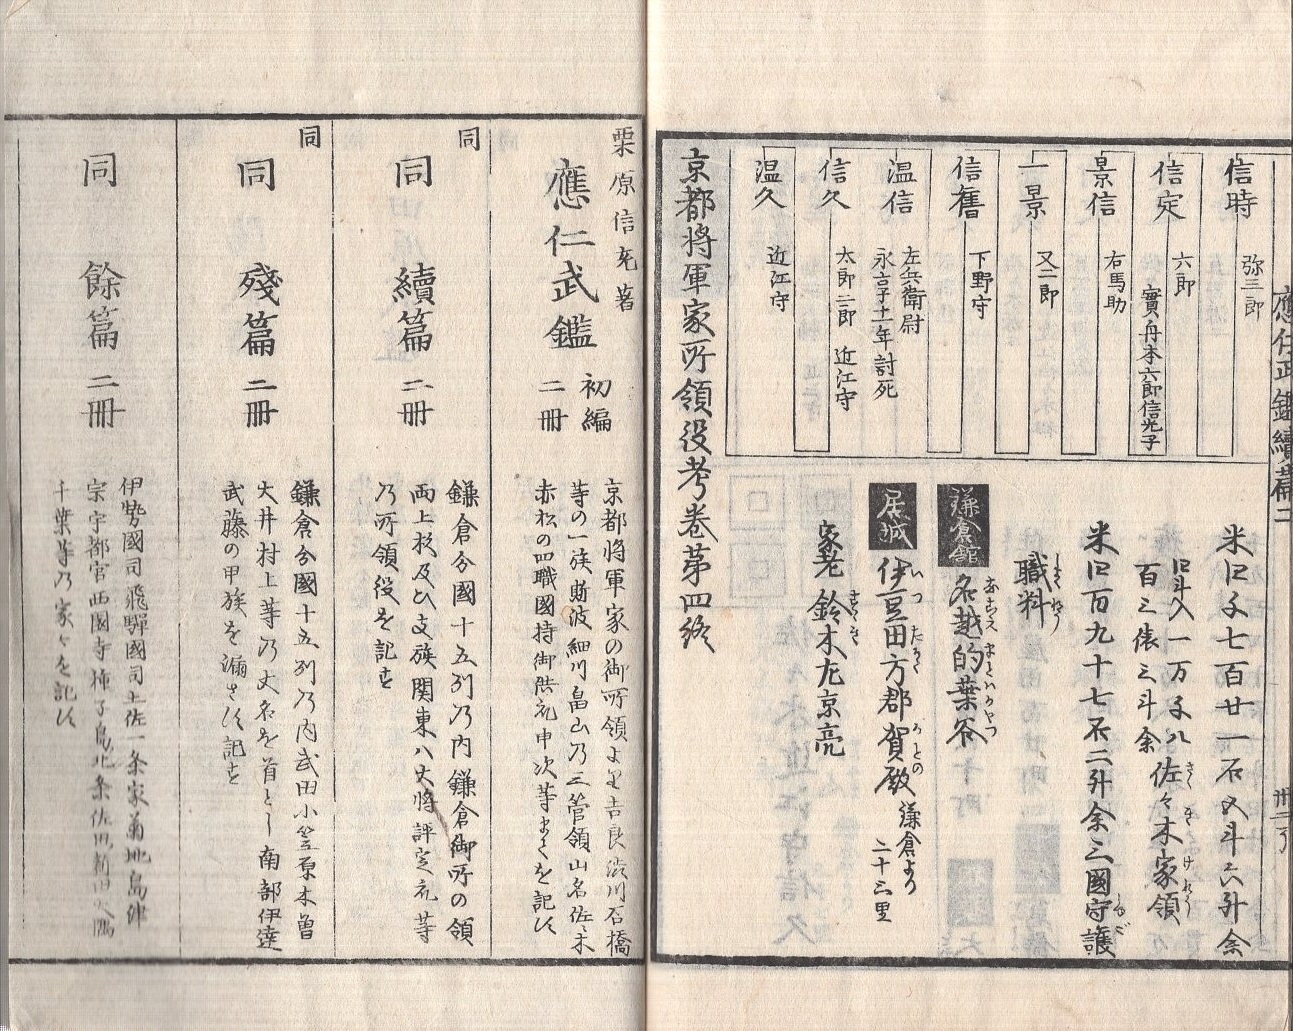 應仁武鑑續篇二
信時 弥三郎
信定 六郎 實舟木六郎信光子
景信 右馬助
一景 又二郎
信舊 下野守
温信 左兵衛尉
永享十一年討死
信久 太郎二郎 近江守
温久 近江守
米口千七百廿一石五斗六升余
口斗入一万千八
百三俵三斗余
佐々木家領
米口百九十七石二升余三國守護
職料
鎌倉館 名越的葉谷
居城 伊豆田方郡賀殿 鎌倉より
二十三里
家老 鈴木左京亮
京都将軍家所領役考巻第四終
栗原信充著
應仁武鑑 初編
二冊
京都将軍家の御所領より吉良渋川石橋
等の一族斯波細川畠山乃三管領山名佐々木
赤松の四職國持御供衆申次等まてを記ス
同
同 續篇 二冊
鎌倉分國十五列乃内鎌倉御所の領
両上杦及ひ支族関東八大将評定衆等
乃所領役を記す
同
同 殘篇 二冊
鎌倉分國十五列乃内武田小笠原木曽
大井村上等乃大名を首とし南部伊達
武藤の甲族を漏さす記す
同 餘篇 二冊
伊勢國司飛騨國司土佐一条家菊地島津
宗宇都宮西園寺種子島北条佐田新田大隅
千葉等乃家々を記ス